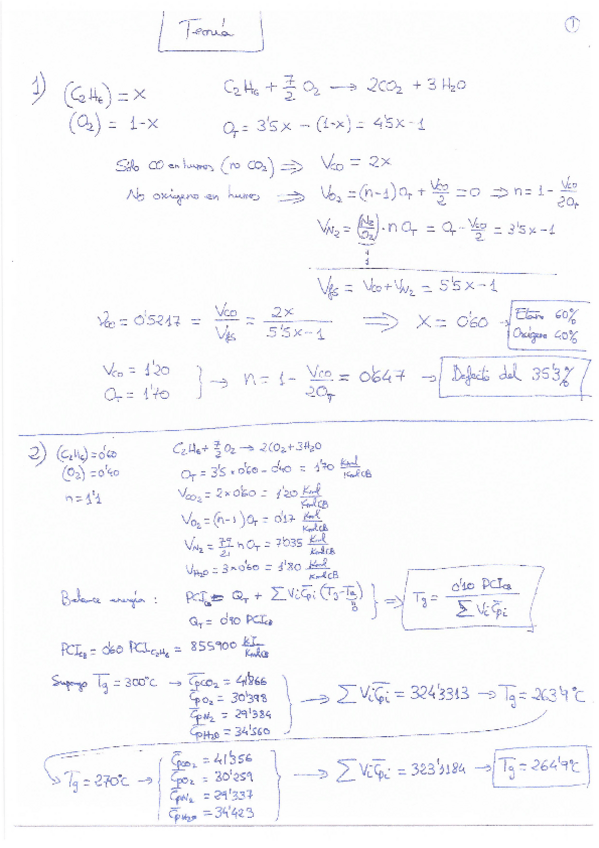 Teoría
1
1) (C2H6) = x   C2H6 + 7/2 O2 → 2CO2 + 3H2O
(O2) = 1-x   OT = 3'5x - (1-x) = 4'5x-1
Sólo CO en humos (no CO2) ⇒ VCO = 2x
No oxígeno en humos ⇒ VO2 = (n-1)OT + VCO/2 = 0 ⇒ n = 1 - VCO/2OT
VN2 = (N2/O2)·n OT = OT - VCO/2 = 3'5x-1
1
Vfs = VCO + VN2 = 5'5x-1
γCO = 0'5217 = VCO/Vfs = 2x/5'5x-1 ⇒ x = 0'60 → Etano 60%
Oxígeno 40%
VCO = 1'20
OT = 1'70 } → n = 1 - VCO/2OT = 0'647 → Defecto del 35'3%
2) (C2H6) = 0'60   C2H6 + 7/2 O2 → 2CO2 + 3H2O
(O2) = 0'40   OT = 3'5×0'60 - 0'40 = 1'70 Kmol/KmolCB
n = 1'1   VCO2 = 2×0'60 = 1'20 Kmol/KmolCB
VO2 = (n-1)OT = 0'17 Kmol/KmolCB
VN2 = 79/21 n OT = 7'035 Kmol/KmolCB
VH2O = 3×0'60 = 1'80 Kmol/KmolCB
Balance energía: PCICB = QT + ∑ViCpi (Tg-T0) } ⇒ Tg = 0'10 PCICB / ∑ViCpi
0
QT = 0'90 PCICB
PCICB = 0'60 PCIC2H6 = 855900 KJ/KmolCB
Supongo Tg = 300°C → CpCO2 = 41'866
CpO2 = 30'398 → ∑ViCpi = 324'3313 → Tg = 263'9°C
CpN2 = 29'384
CpH2O = 34'560
Tg = 270°C → CpCO2 = 41'356
CpO2 = 30'259 → ∑ViCpi = 323'1184 → Tg = 264'9°C
CpN2 = 29'337
CpH2O = 34'423